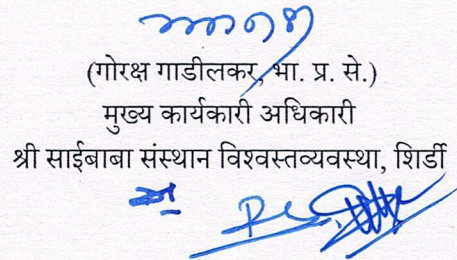 (गोरक्ष गाडीलकर, भा. प्र. से.)
मुख्य कार्यकारी अधिकारी
श्री साईबाबा संस्थान विश्वस्तव्यवस्था, शिर्डी